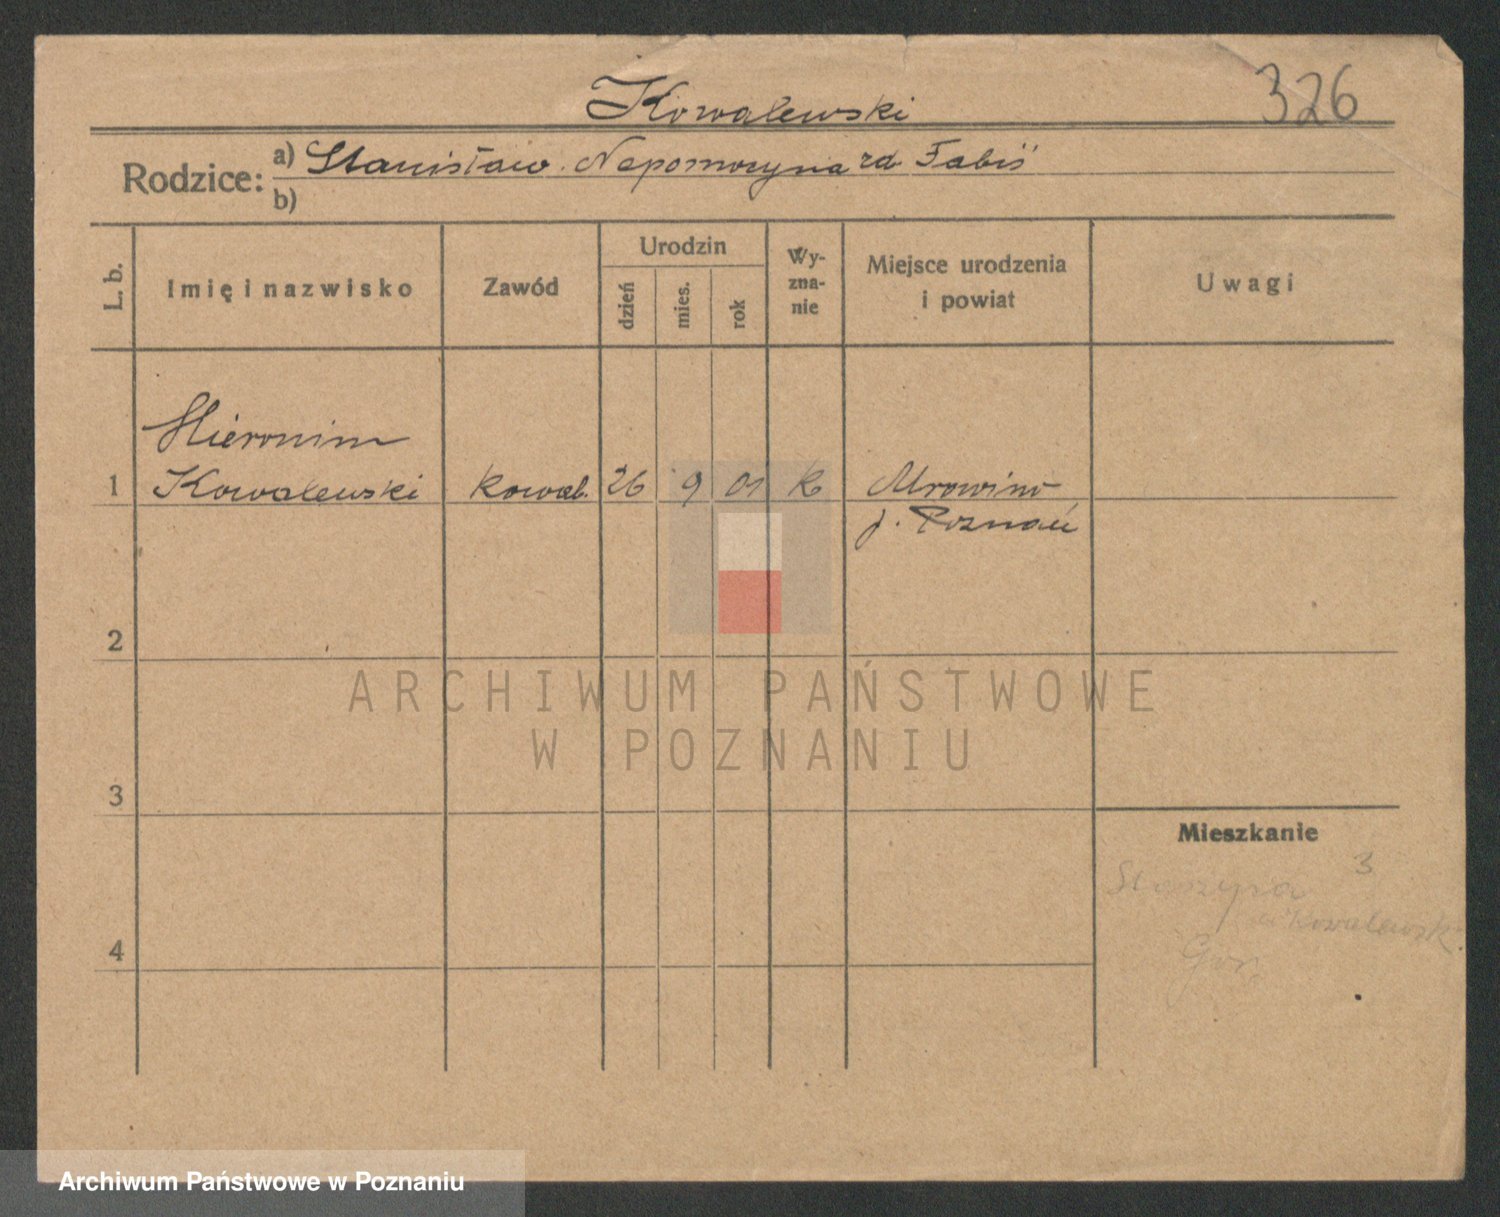 Kowalewski
326
Rodzice:
a) Stanisław. Nepomocyna zd. Fabiś
b)
L. b.
Imię i nazwisko
Zawód
Urodzin
dzień
mies.
rok
Wy-
zna-
nie
Miejsce urodzenia
i powiat
Uwagi
Hieronim
1 Kowalewski kowal. 26 9 01 k Mrowino
p. Poznań
2
ARCHIWUM PAŃSTWOWE
W POZNANIU
3
Mieszkanie
3
u Kowalewsk
4
Archiwum Państwowe w Poznaniu